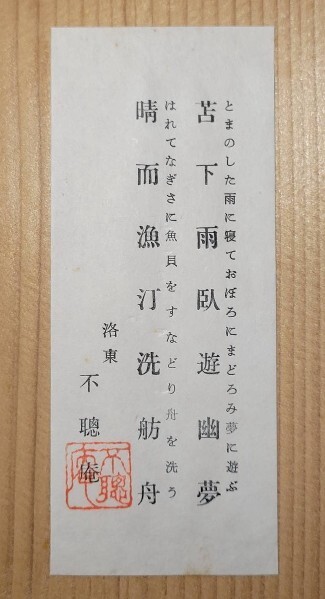 とまのした雨に寝ておぼろにまどろみ夢に遊ぶ
苫下雨臥遊幽夢
はれてなぎさに魚貝をすなどり舟を洗う
晴而漁汀洗舫舟
洛東
不聰庵
不聰庵